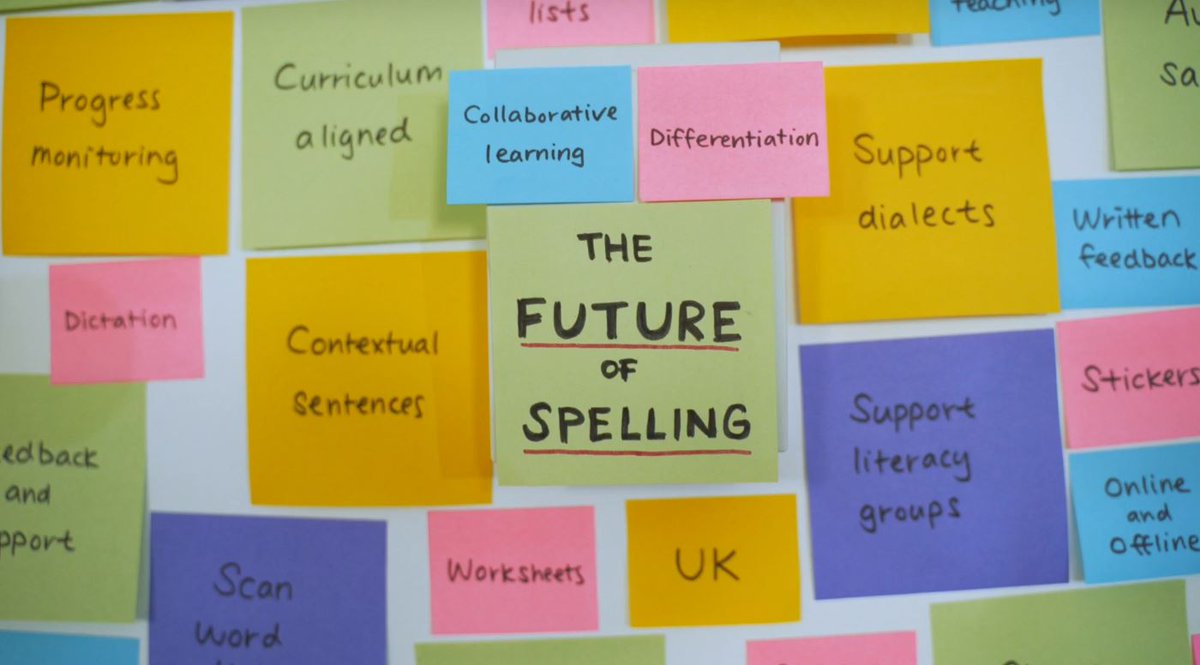 lists
teaching
Progress
monitoring
Curriculum
aligned
Collaborative
learning
Differentiation
Support
dialects
Written
feedback
Dictation
Contextual
Sentences
THE
FUTURE
OF
SPELLING
Support
literacy
groups
Stickers
Online
and
Offline
and
Scan
Word
Worksheets
UK